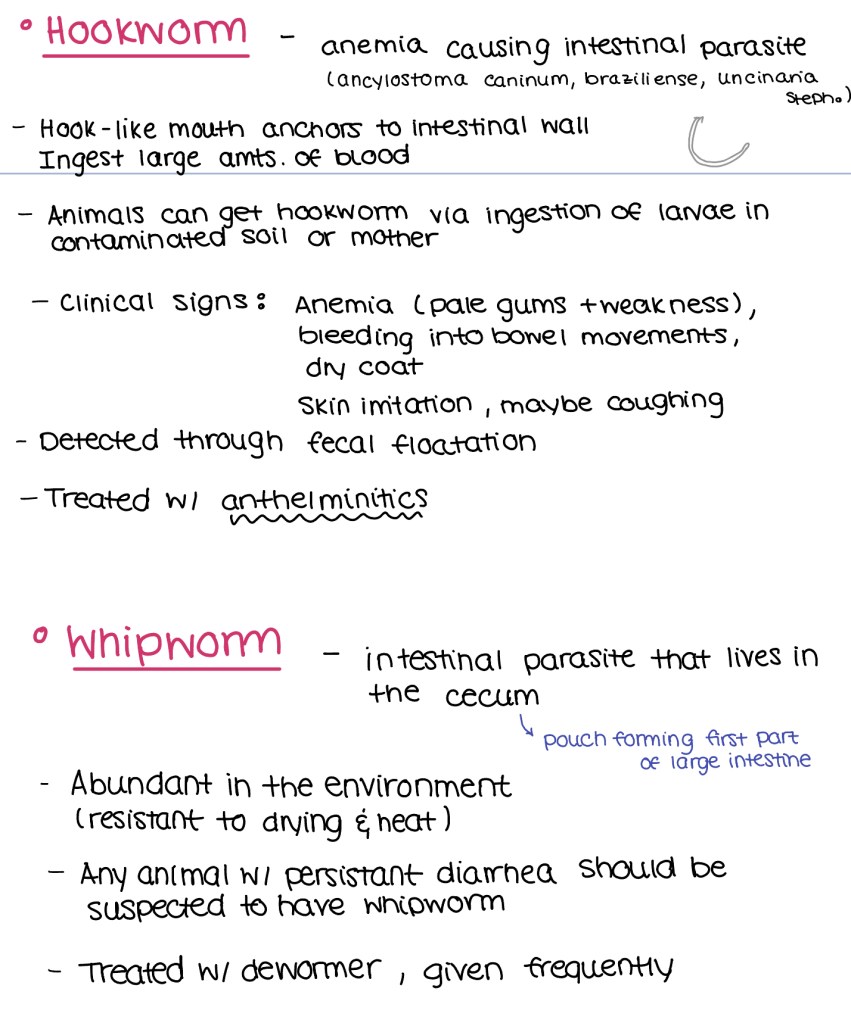 ° Hookworm - anemia causing intestinal parasite
(ancylostoma caninum, braziliense, uncinaria
steph.)
- Hook-like mouth anchors to intestinal wall
Ingest large amts. of blood
- Animals can get hookworm via ingestion of larvae in
contaminated soil or mother
- Clinical signs: Anemia (pale gums + weakness),
bleeding into bowel movements,
dry coat
Skin irritation, maybe coughing
- Detected through fecal floatation
- Treated w/ anthelminitics
° Whipworm - intestinal parasite that lives in
the cecum
↳ pouch forming first part
of large intestine
- Abundant in the environment
(resistant to drying & heat)
- Any animal w/ persistant diarrhea should be
suspected to have whipworm
- Treated w/ dewormer, given frequently